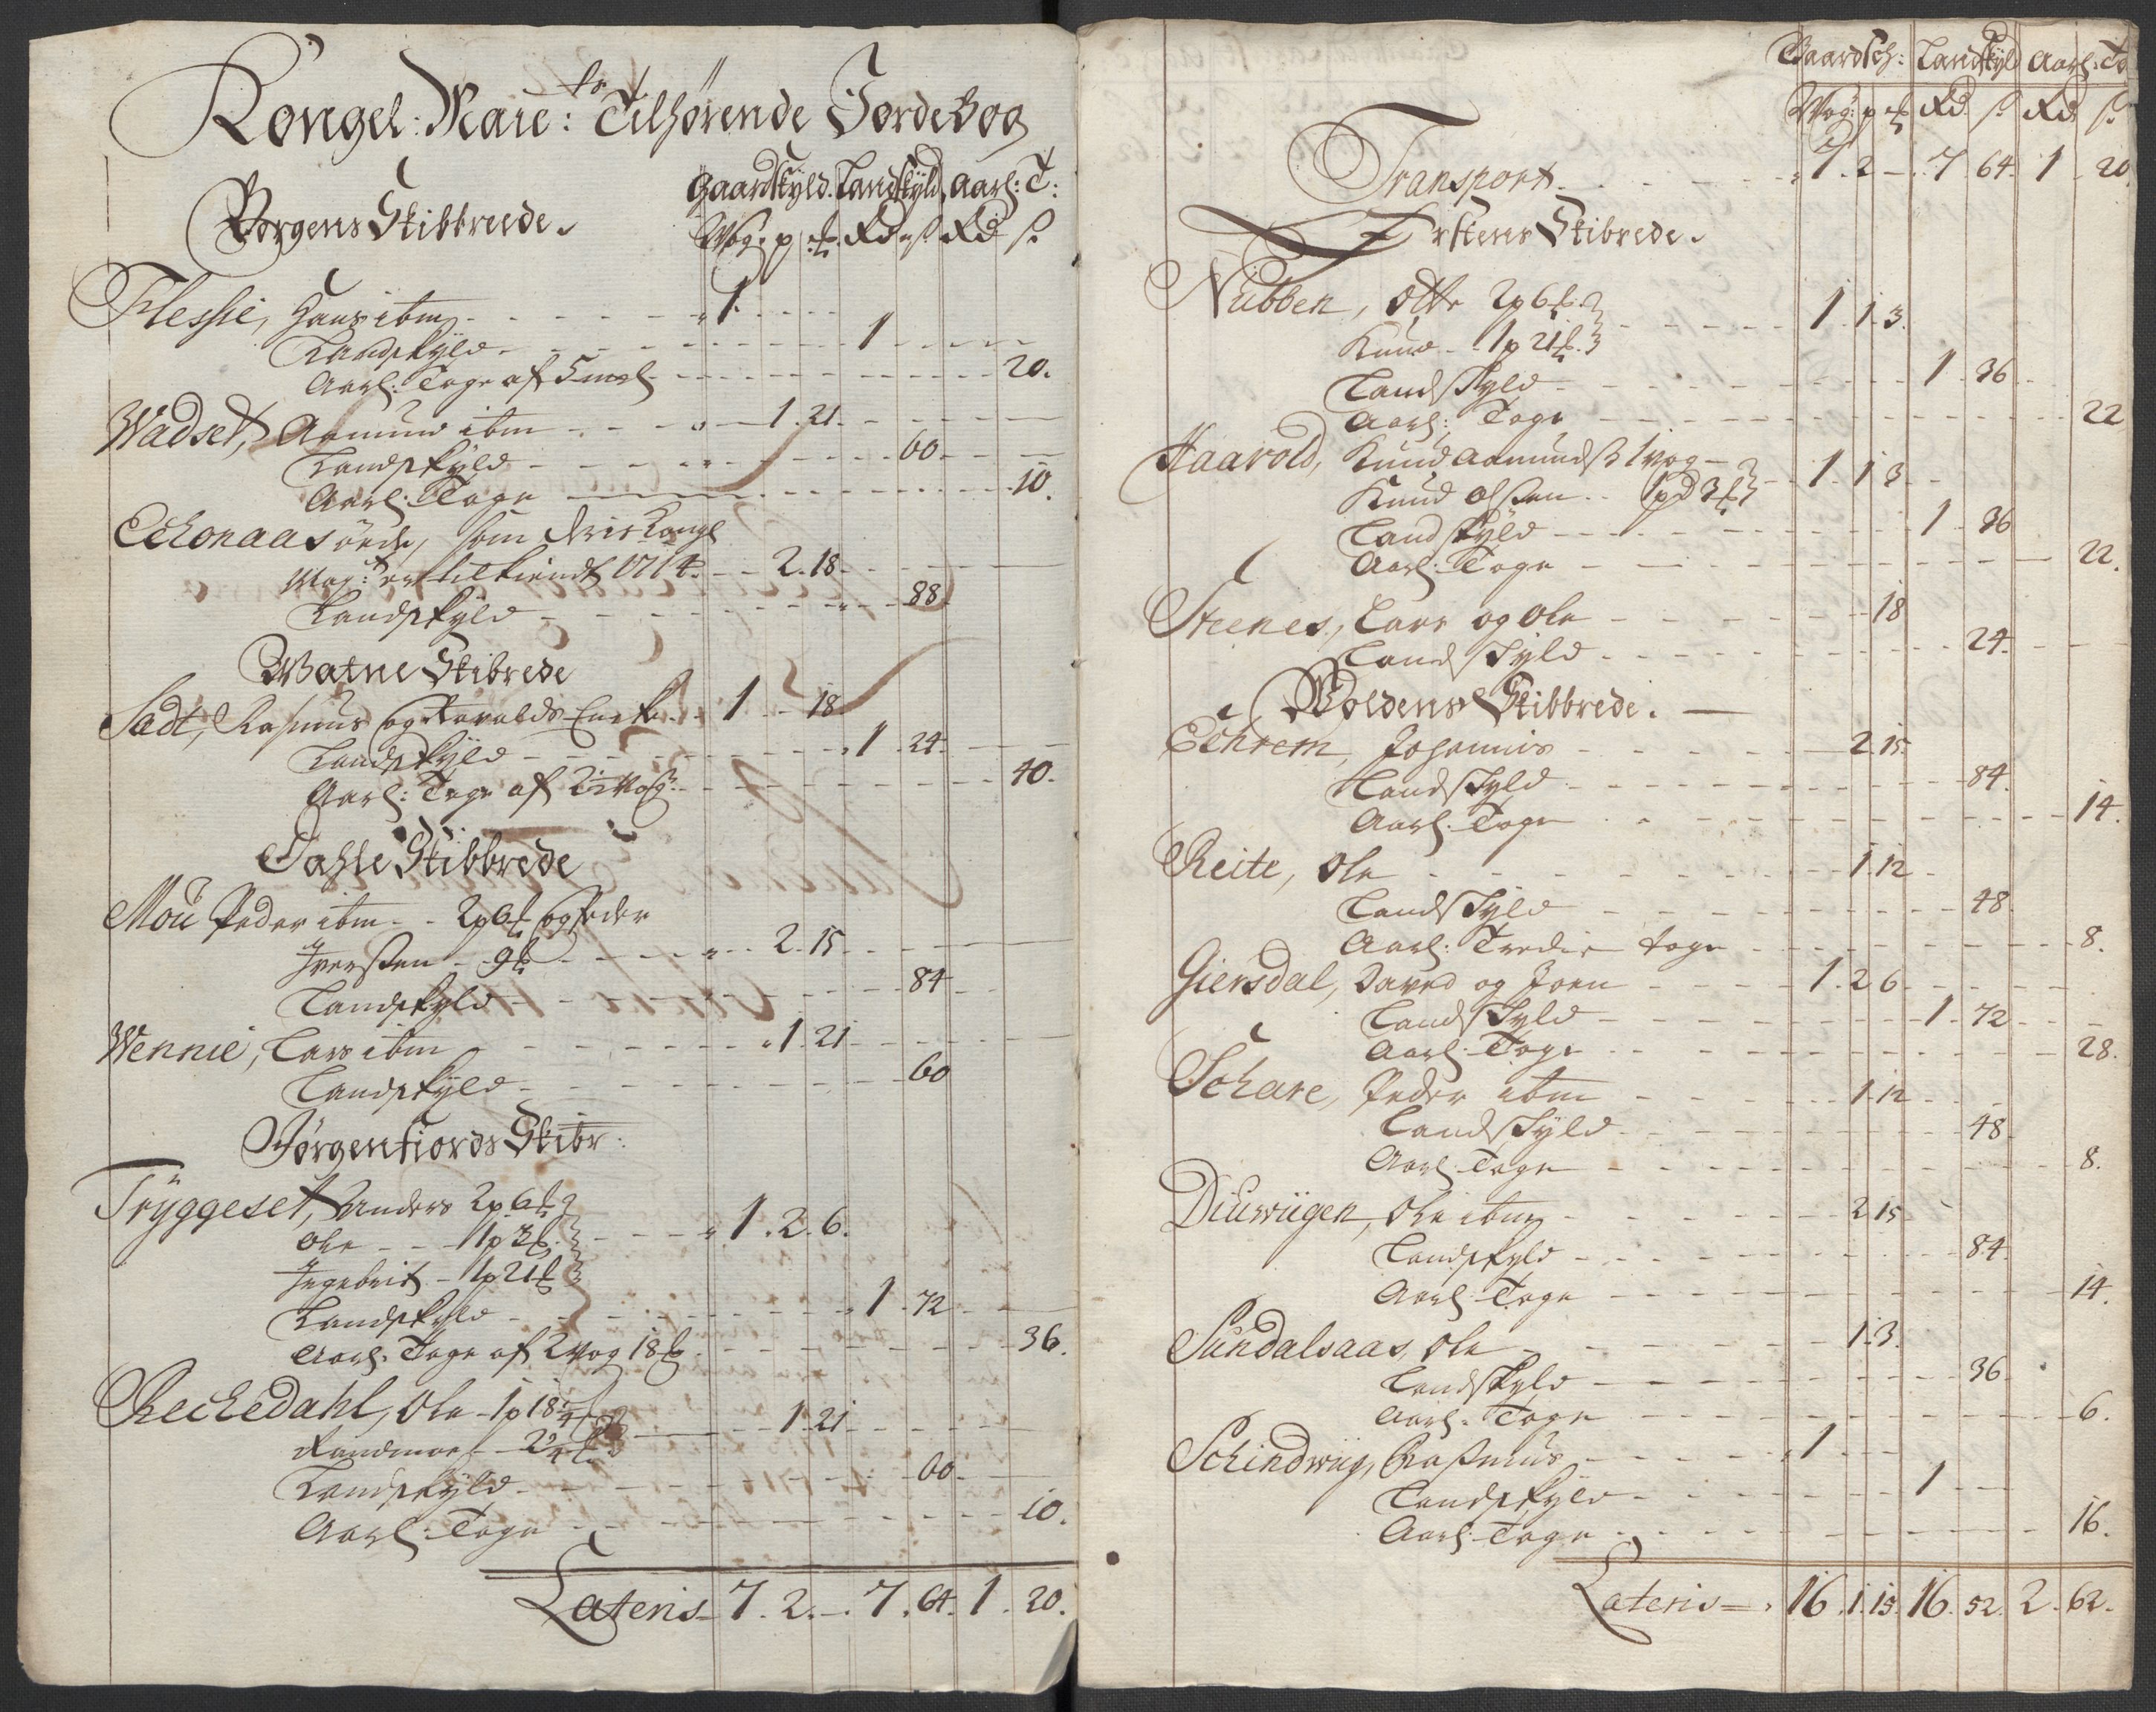 Kongel: Maie:ts Tilhørende Jordebog
Gaardskyld. Landskyld. Aarl: T:
Worgens Skibbrede.
Wog: p. ℔. Rd. ß. Rd ß.
Flessie, Hans ibm - - - 1. - - -
Landskyld - - - 1 - - -
Aarl: Tage af 5 mæl - - - 20.
Wadset, Aamund ibm - - - 1. 21. - - -
Landskyld - - - 60. - -
Aarl: Tage - - - 10.
Echonaas øede, som Deris Kongl
May:t er tilkiendt 1714. - - 2. 18. - - -
Landskyld - - - 88
Watne Skibrede
Sadt, Rasmus og Havalds Encke - - 1 - - 18
Landskyld - - - 1. 24. - -
Aarl: Tage af 2½ Wog: - - - 40.
Dahle Skibbrede
Mou Peder ibm - - 2p 6℔ og Peder
Iverßen - 9℔ - - - 2. 15. - -
Landskyld - - - 84 - -
Wennie, Lars ibm - - - 1. 21. - -
Landskyld - - - 60
Jørgenfiords Skibr:
Tryggeset, Anders 2p. 6℔
Ole - - - 1p 3℔. - - - 1. 2. 6.
Ingebrit - 1p 21℔
Landskyld - - - 1. 72 - -
Aarl: Tage af 2 Wog 18℔ - - - 36.
Reckedahl, Ole - 1p 18¾
Randmoe - 2¼℔ - - - 1. 21. - -
Landskyld - - - 60. - -
Aarl: Tage - - - 10.
Lateris - 7. 2. - . 7. 64. 1. 20.
Gaardsch: Landskyld Aarl: Ta
Wog: p ℔ Rd. ß. Rd ß.
Transport - - - 7. 2 - . 7. 64. 1. 20.
Ørstens Skibrede.
Nubben, Otte 2p 6℔.
Knud - - 1p 21℔. - - - 1. 1. 3.
Landskyld - - - 1. 36. -
Aarl: Tage - - - 22
Haavold, Knud Aamundß 1 wog -
Knud Olßen - - 1pd 3℔ - - 1. 1 3. -
Landskyld - - - 1. 36
Aarl: Tage - - - 22.
Steenes, Lars og Ole - - - 18
Landskyld - - - 24. - -
Woldens Skibbrede. -
Echrem, Johannis - - - 2. 15.
Landskyld - - - 84.
Aarl: Tage - - - 14.
Reite, Ole - - - 1. 12.
Landskyld - - - 48.
Aarl: Tredie tage - - - 8.
Giersdal, David og Joen - - - 1. 2 6. - -
Landskyld - - - 1. 72. - -
Aarl: Tage - - - 28.
Schare, Peder ibm - - - 1. 12. - -
Landskyld - - - 48
Aarl: Tage - - - 8.
Diuewiigen, Ole ibm - - - 2. 15. -
Landskyld - - - 84.
Aarl: Tage - - - 14.
Sundalsaas, Ole - - - 1. 3.
Landskyld - - - 36
Aarl: Tage - - - 6.
Schindwiig, Raßmus - - - 1. - -
Landskyld - - - 1. - -
Aarl: Tage - - - 16.
Lateris - . 16. 1. 15. 16. 52. 2. 62.